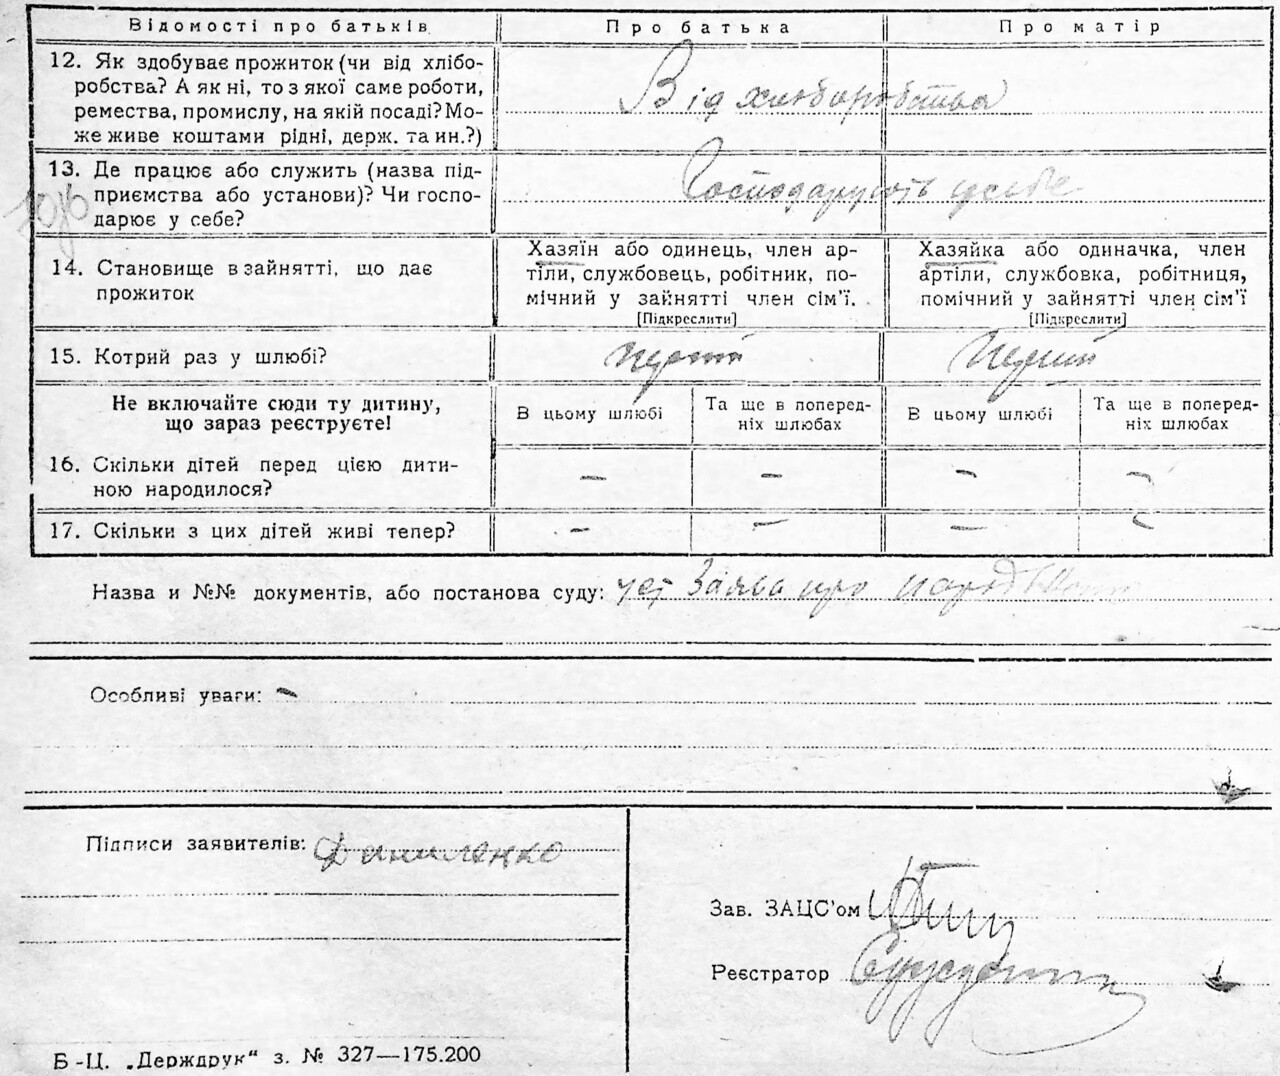 Відомості про батьків Про батька Про матір
12. Як здобуває прожиток (чи від хлібо-
робства? А як ні, то з якої саме роботи,
ремества, промислу, на якій посаді? Мо-
же живе коштами рідні, держ. та ин.?)
Від хліборобства
13. Де працює або служить (назва під-
приємства або установи)? Чи госпо-
дарює у себе?
Господарують у себе
14. Становище в зайнятті, що дає
прожиток
Хазяїн або одинець, член ар-
тіли, службовець, робітник, по-
мічний у зайнятті член сім'ї.
[Підкреслити]
Хазяйка або одиначка, член
артіли, службовка, робітниця,
помічний у зайнятті член сім'ї
[Підкреслити]
15. Котрий раз у шлюбі? перший перший
Не включайте сюди ту дитину,
що зараз реєструєте!
В цьому шлюбі
Та ще в поперед-
ніх шлюбах
В цьому шлюбі
Та ще в поперед-
ніх шлюбах
16. Скільки дітей перед цією дити-
ною народилося?
– – – –
17. Скільки з цих дітей живі тепер? – – – –
Назва и №№ документів, або постанова суду: уст заява про народження
Особливі уваги: –
Підписи заявителів: Даниленко
Зав. ЗАЦС'ом
Реєстратор
Б-Ц. „Держдрук" з. № 327—175.200